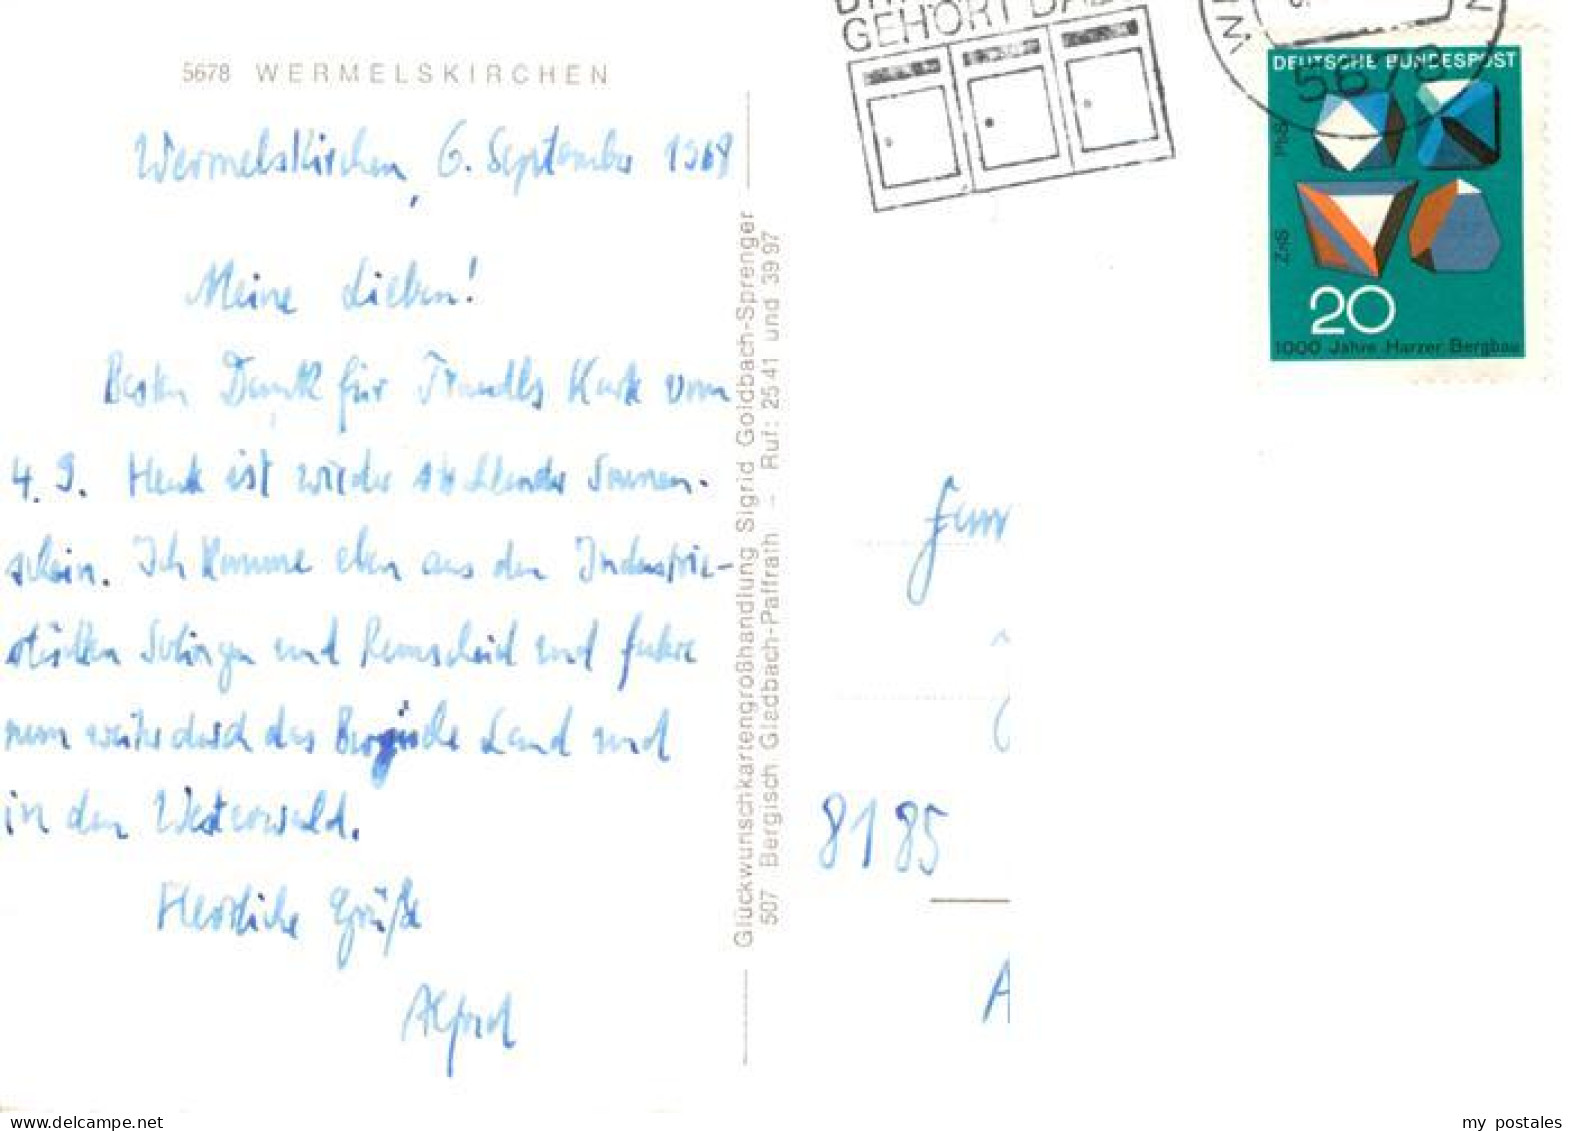 5678 WERMELSKIRCHEN
Wermelskirchen, 6. September 1968
Meine Lieben!
Besten Dank für Traudls Karte vom
4. 9. Heute ist wieder strahlender Sonnen-
schein. Ich komme eben aus den Industrie-
städten Solingen und Remscheid und fahre
nun weiter durch das Bergische Land und
in den Westerwald.
Herzliche Grüße
Alfred
Glückwunschkartengroßhandlung Sigrid Goldbach-Sprenger
507 Bergisch Gladbach-Paffrath – Ruf: 25 41 und 39 97
GEHÖRT DA
5678
DEUTSCHE BUNDESPOST
PbS
ZnS
20
1000 Jahre Harzer Bergbau
8185
A
my postales
www.delcampe.net